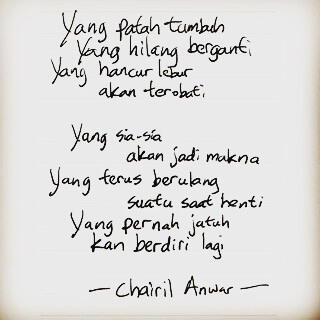 Yang patah tumbuh
Yang hilang berganti
Yang hancur lebur
akan terobati
Yang sia-sia
akan jadi makna
Yang terus berulang
suatu saat henti
Yang pernah jatuh
kan berdiri lagi
— Chairil Anwar —